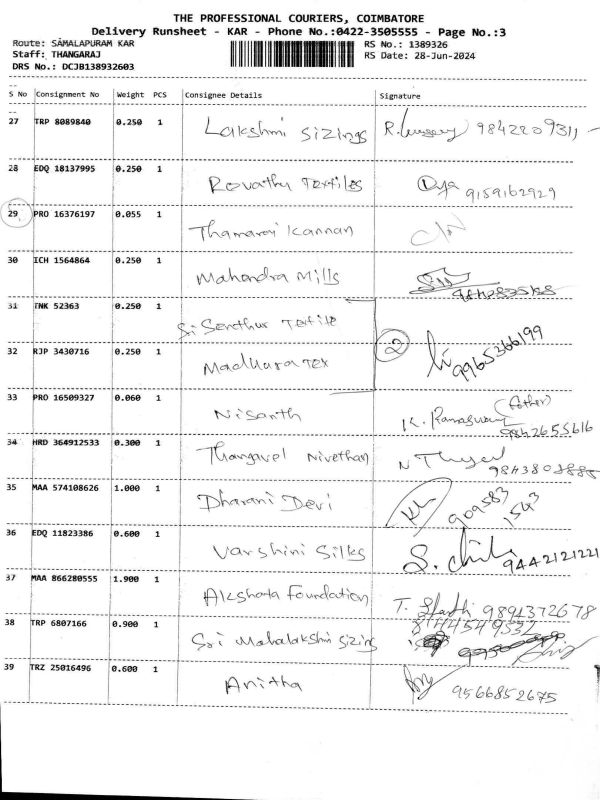 THE PROFESSIONAL COURIERS, COIMBATORE
Delivery Runsheet - KAR - Phone No.:0422-3505555 - Page No.:3
Route: SAMALAPURAM KAR RS No.: 1389326
Staff: THANGARAJ RS Date: 28-Jun-2024
DRS No.: DCJB138932603
S No Consignment No Weight PCS Consignee Details Signature
27 TRP 8089840 0.250 1 Lakshmi Sizings 9842209311
28 EDQ 18137995 0.250 1 Revathy Textiles 9159162929
29 PRO 16376197 0.055 1 Thamarai Kannan
30 ICH 1564864 0.250 1 Mahendra Mills
31 TNK 52363 0.250 1 Sri Senthur Textile
2 9965366199
32 RJP 3430716 0.250 1 Madhura Tex
33 PRO 16509327 0.060 1 Nisanth K. Ramaswamy (Father) 9842655616
34 HRD 364912533 0.300 1 Thangavel Nivethan 9843808885
35 MAA 574108626 1.000 1 Dharani Devi 909583
1543
36 EDQ 11823386 0.600 1 Varshini Silks 9442121221
37 MAA 866280555 1.900 1 Akshara Foundation 9894372678
38 TRP 6807166 0.900 1 Sri Mahalakshmi Sizing 8144549332
39 TRZ 25016496 0.600 1 Anitha 9566852675